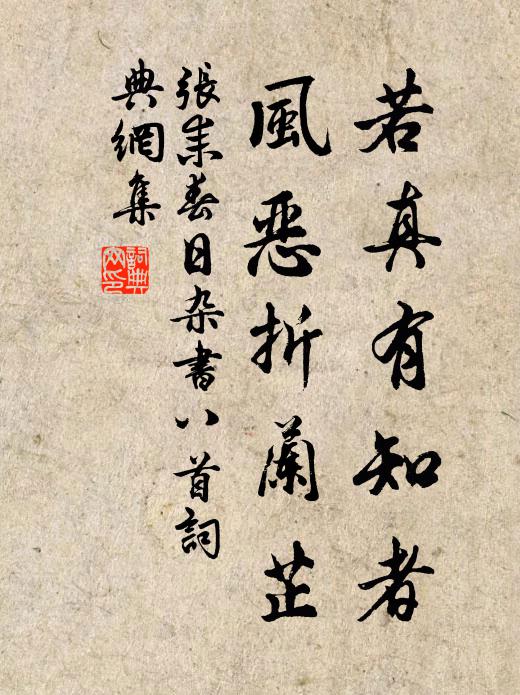 若真有知者
風惡折蘭芷
張耒春日杂書八首詞
典網集
詞典